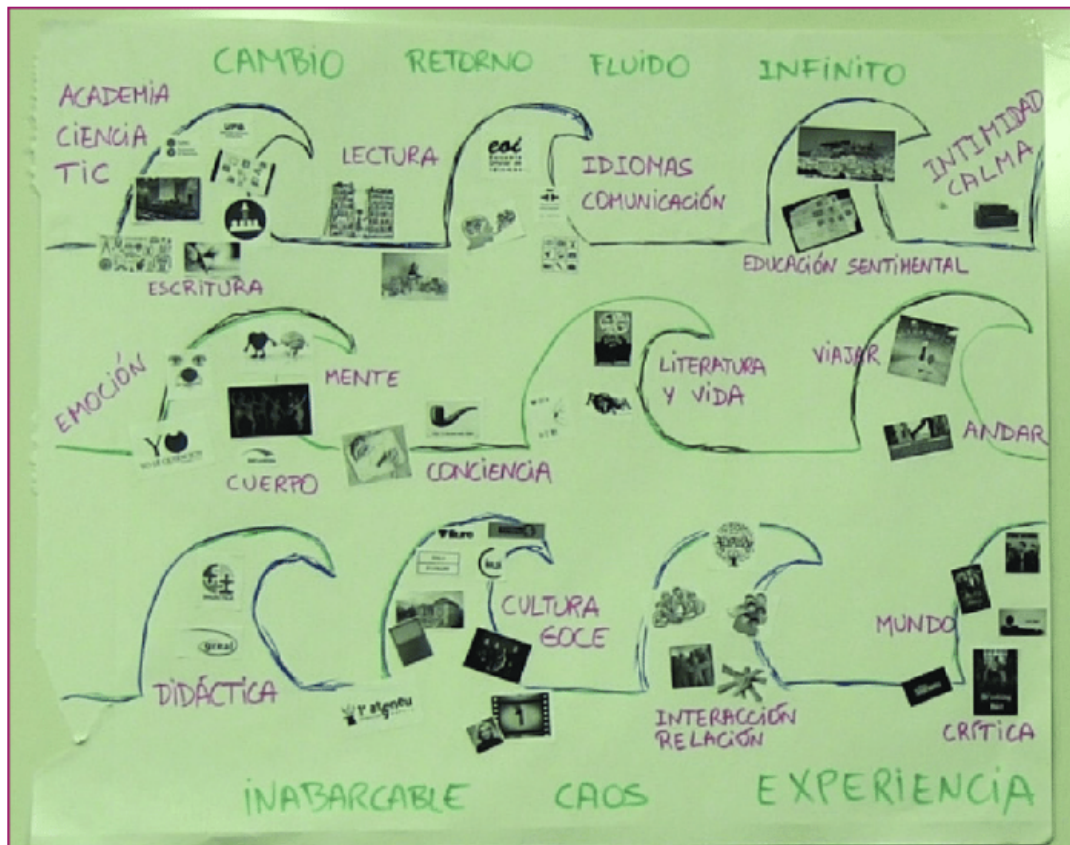 CAMBIO RETORNO FLUIDO INFINITO
ACADEMIA
CIENCIA
TIC
LECTURA
eoi
IDIOMAS
COMUNICACIÓN
INTIMIDAD
CALMA
ESCRITURA
EDUCACIÓN SENTIMENTAL
EMOCIÓN
MENTE
YO
CUERPO
CONCIENCIA
LITERATURA
Y VIDA
VIAJAR
ANDAR
DIDÁCTICA
greal
CULTURA
GOCE
l'ateneu
1
INTERACCIÓN
RELACIÓN
MUNDO
CRÍTICA
INABARCABLE CAOS EXPERIENCIA